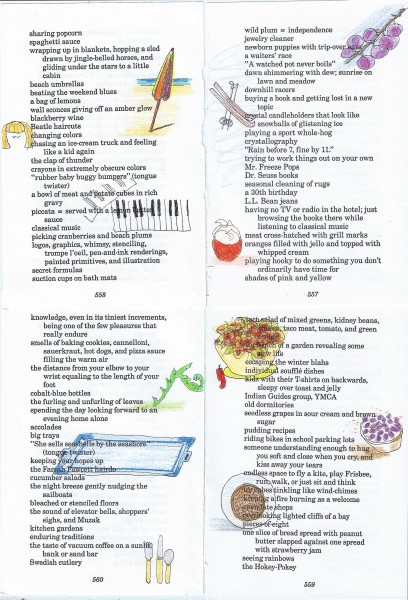 sharing popcorn
spaghetti sauce
wrapping up in blankets, hopping a sled
drawn by jingle-belled horses, and
gliding under the stars to a little
cabin
beach umbrellas
beating the weekend blues
a bag of lemons
wall sconces giving off an amber glow
blackberry wine
Beatle haircuts
changing colors
chasing an ice-cream truck and feeling
like a kid again
the clap of thunder
crayons in extremely obscure colors
"rubber baby buggy bumpers" (tongue
twister)
a bowl of meat and potato cubes in rich
gravy
piccata = served with a lemon butter
sauce
classical music
picking cranberries and beach plums
logos, graphics, whimsy, stenciling,
trompe l'oeil, pen-and-ink renderings,
painted primitives, and illustration
secret formulas
suction cups on bath mats
558
wild plum = independence
jewelry cleaner
newborn puppies with trip-over ears
a waiters' race
"A watched pot never boils"
dawn shimmering with dew; sunrise on
lawn and meadow
downhill racers
buying a book and getting lost in a new
topic
crystal candleholders that look like
snowballs of glistening ice
playing a sport whole-hog
crystallography
"Rain before 7, fine by 11."
trying to work things out on your own
Mr. Freeze Pops
Dr. Seuss books
seasonal cleaning of rugs
a 30th birthday
L.L. Bean jeans
having no TV or radio in the hotel; just
browsing the books there while
listening to classical music
meat cross-hatched with grill marks
oranges filled with jello and topped with
whipped cream
playing hooky to do something you don't
ordinarily have time for
shades of pink and yellow
557
knowledge, even in its tiniest increments,
being one of few pleasures that
really endure
smells of baking cookies, cannelloni,
sauerkraut, hot dogs, and pizza sauce
filling the warm air
the distance from your elbow to your
wrist equaling to the length of your
foot
cobalt-blue bottles
the furling and unfurling of leaves
spending the day looking forward to an
evening home alone
accolades
big trays
"She sells seashells by the seashore"
(tongue twister)
keeping your hopes up
the Farrah Fawcett hairdo
cucumber salads
the night breeze gently nudging the
sailboats
bleached or stenciled floors
the sound of elevator bells, shoppers'
sighs, and Muzak
kitchen gardens
enduring traditions
the taste of vacuum coffee on a sunlit
bank or sand bar
Swedish cutlery
560
taco salad of mixed greens, kidney beans,
cheese, taco meat, tomato, and green
onion
of a garden revealing some
new life
escaping the winter blahs
individual soufflé dishes
kids with their T-shirts on backwards,
sleepy over toast and jelly
Indian Guides group, YMCA
old dormitories
seedless grapes in sour cream and brown
sugar
pudding recipes
riding bikes in school parking lots
someone understanding enough to hug
you soft and close when you cry, and
kiss away your tears
endless space to fly a kite, play Frisbee,
run, walk, or just sit and think
ice cubes tinkling like wind-chimes
keeping a fire burning as a welcome
open-late shops
overlooking lighted cliffs of a bay
pieces-of-eight
one slice of bread spread with peanut
butter slapped against one spread
with strawberry jam
seeing rainbows
the Hokey-Pokey
559